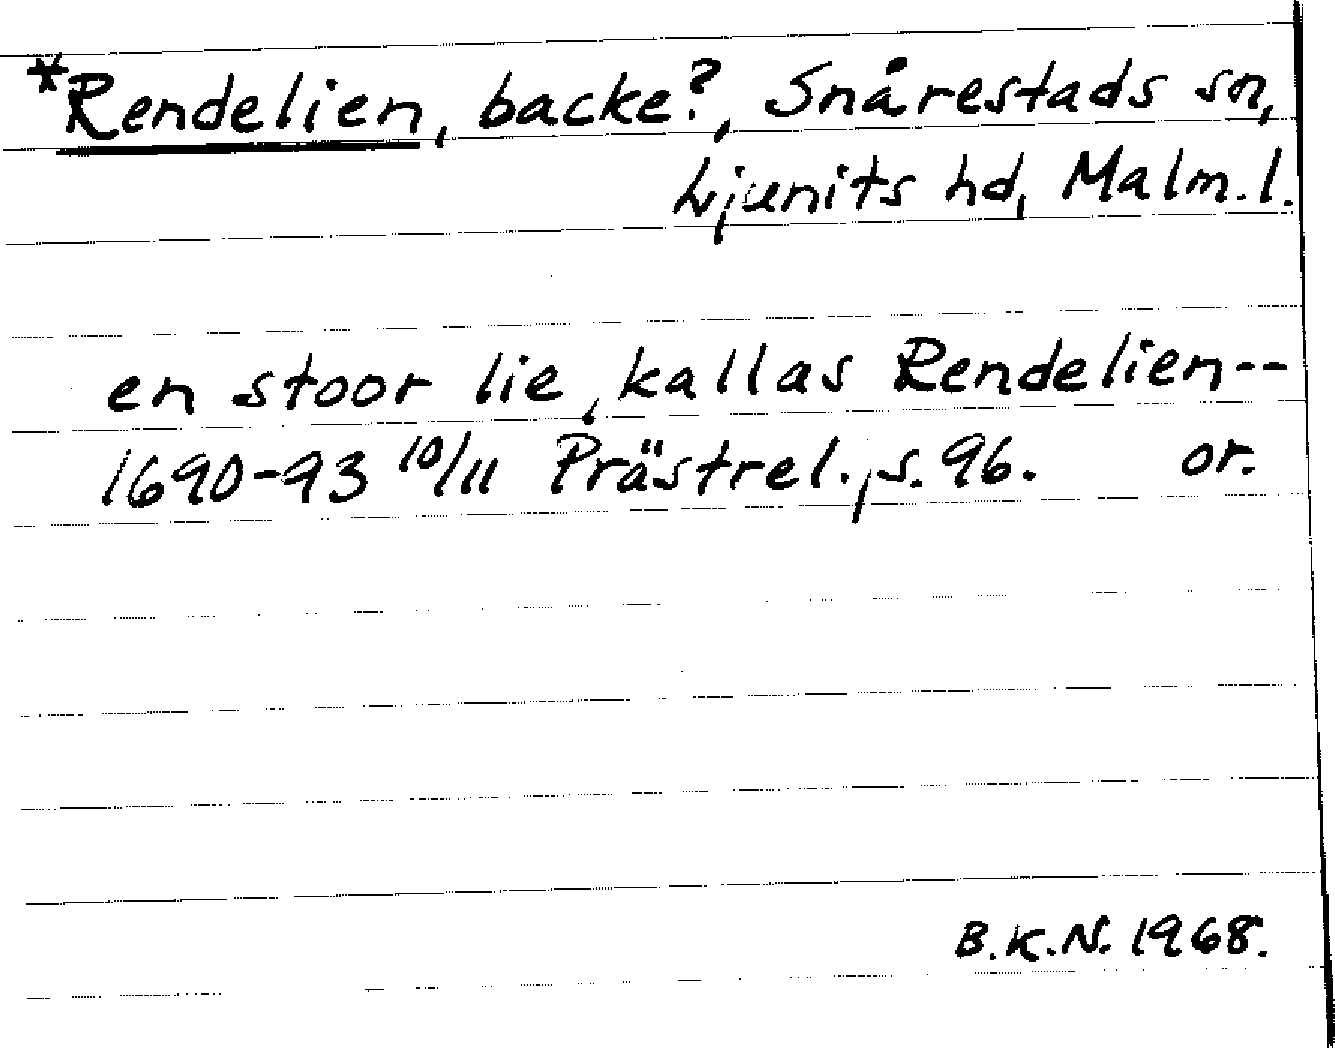 *Rendelien, backe?, Snårestads sn,
Ljunits hd, Malm.l.
en stoor lie, kallas Rendelien--
1690-93 10/11 Prästrel., s. 96. or.
B.K.N. 1968.